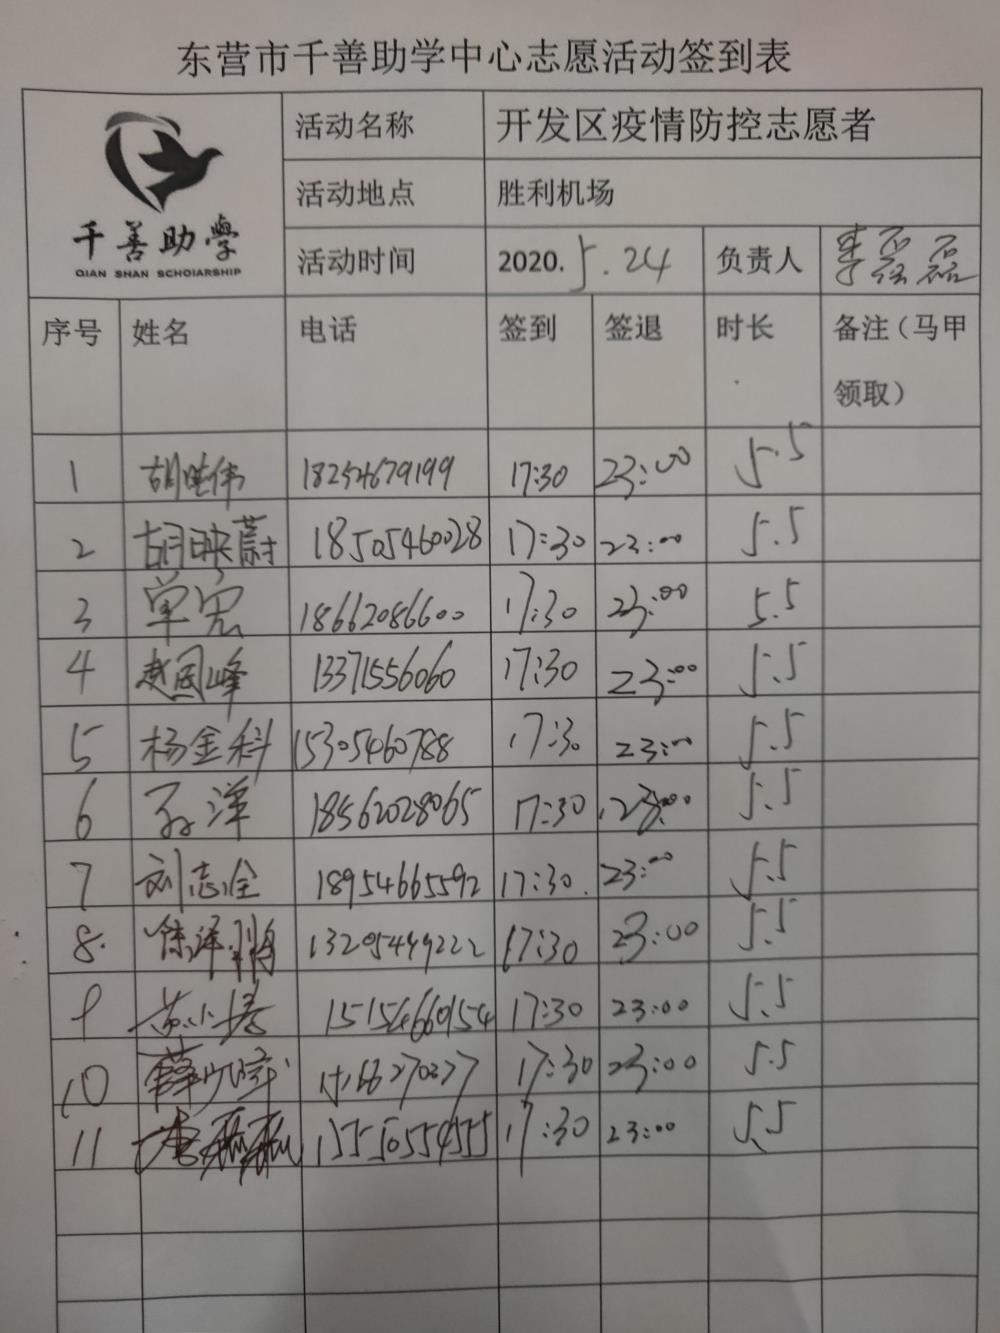 东营市千善助学中心志愿活动签到表
千善助学
QIAN SHAN SCHOIARSHIP
活动名称 开发区疫情防控志愿者
活动地点 胜利机场
活动时间 2020.5.24 负责人 李磊磊
序号 姓名 电话 签到 签退 时长 备注（马甲
领取）
1 胡晓伟 18254679199 17:30 23:00 5.5
2 胡映蔚 18505460028 17:30 23:00 5.5
3 单宏 18662086600 17:30 23:00 5.5
4 赵国峰 13371556060 17:30 23:00 5.5
5 杨金科 15305460788 17:30 23:00 5.5
6 孙洋 18562028065 17:30 23:00 5.5
7 刘志全 18954665592 17:30 23:00 5.5
8 徐泽 13205449222 17:30 23:00 5.5
9 小 15154660154 17:30 23:00 5.5
10 薛 17:30 23:00 5.5
11 李磊磊 17:30 23:00 5.5